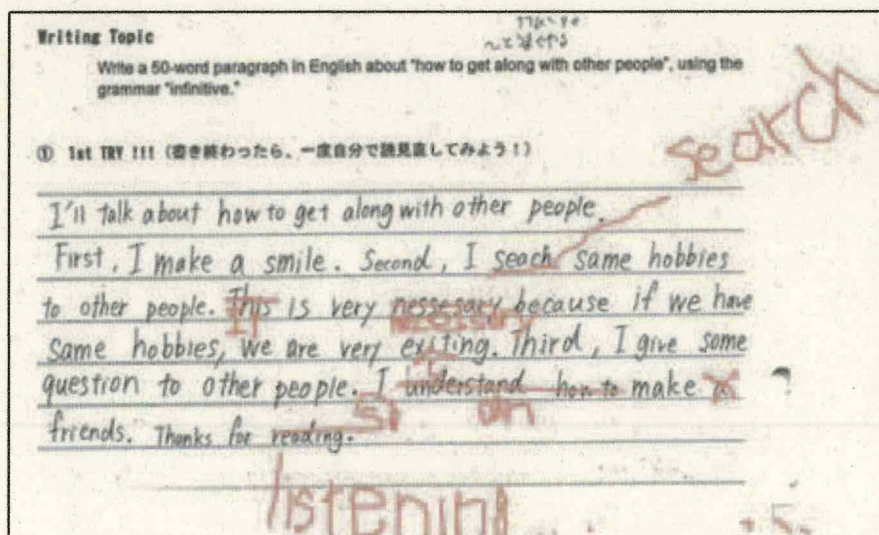 Writing Topic
Write a 50-word paragraph in English about "how to get along with other people", using the
grammar "infinitive."
① 1st TRY !!! (書き終わったら、一度自分で読見直してみよう！)
search
I'll talk about how to get along with other people.
First, I make a smile. Second, I seach same hobbies
to other people. This is very nessesary because if we have
It necessary
same hobbies, we are very exiting. Third, I give some
question to other people. I understand how to make
friends. Thanks for reading.
listening